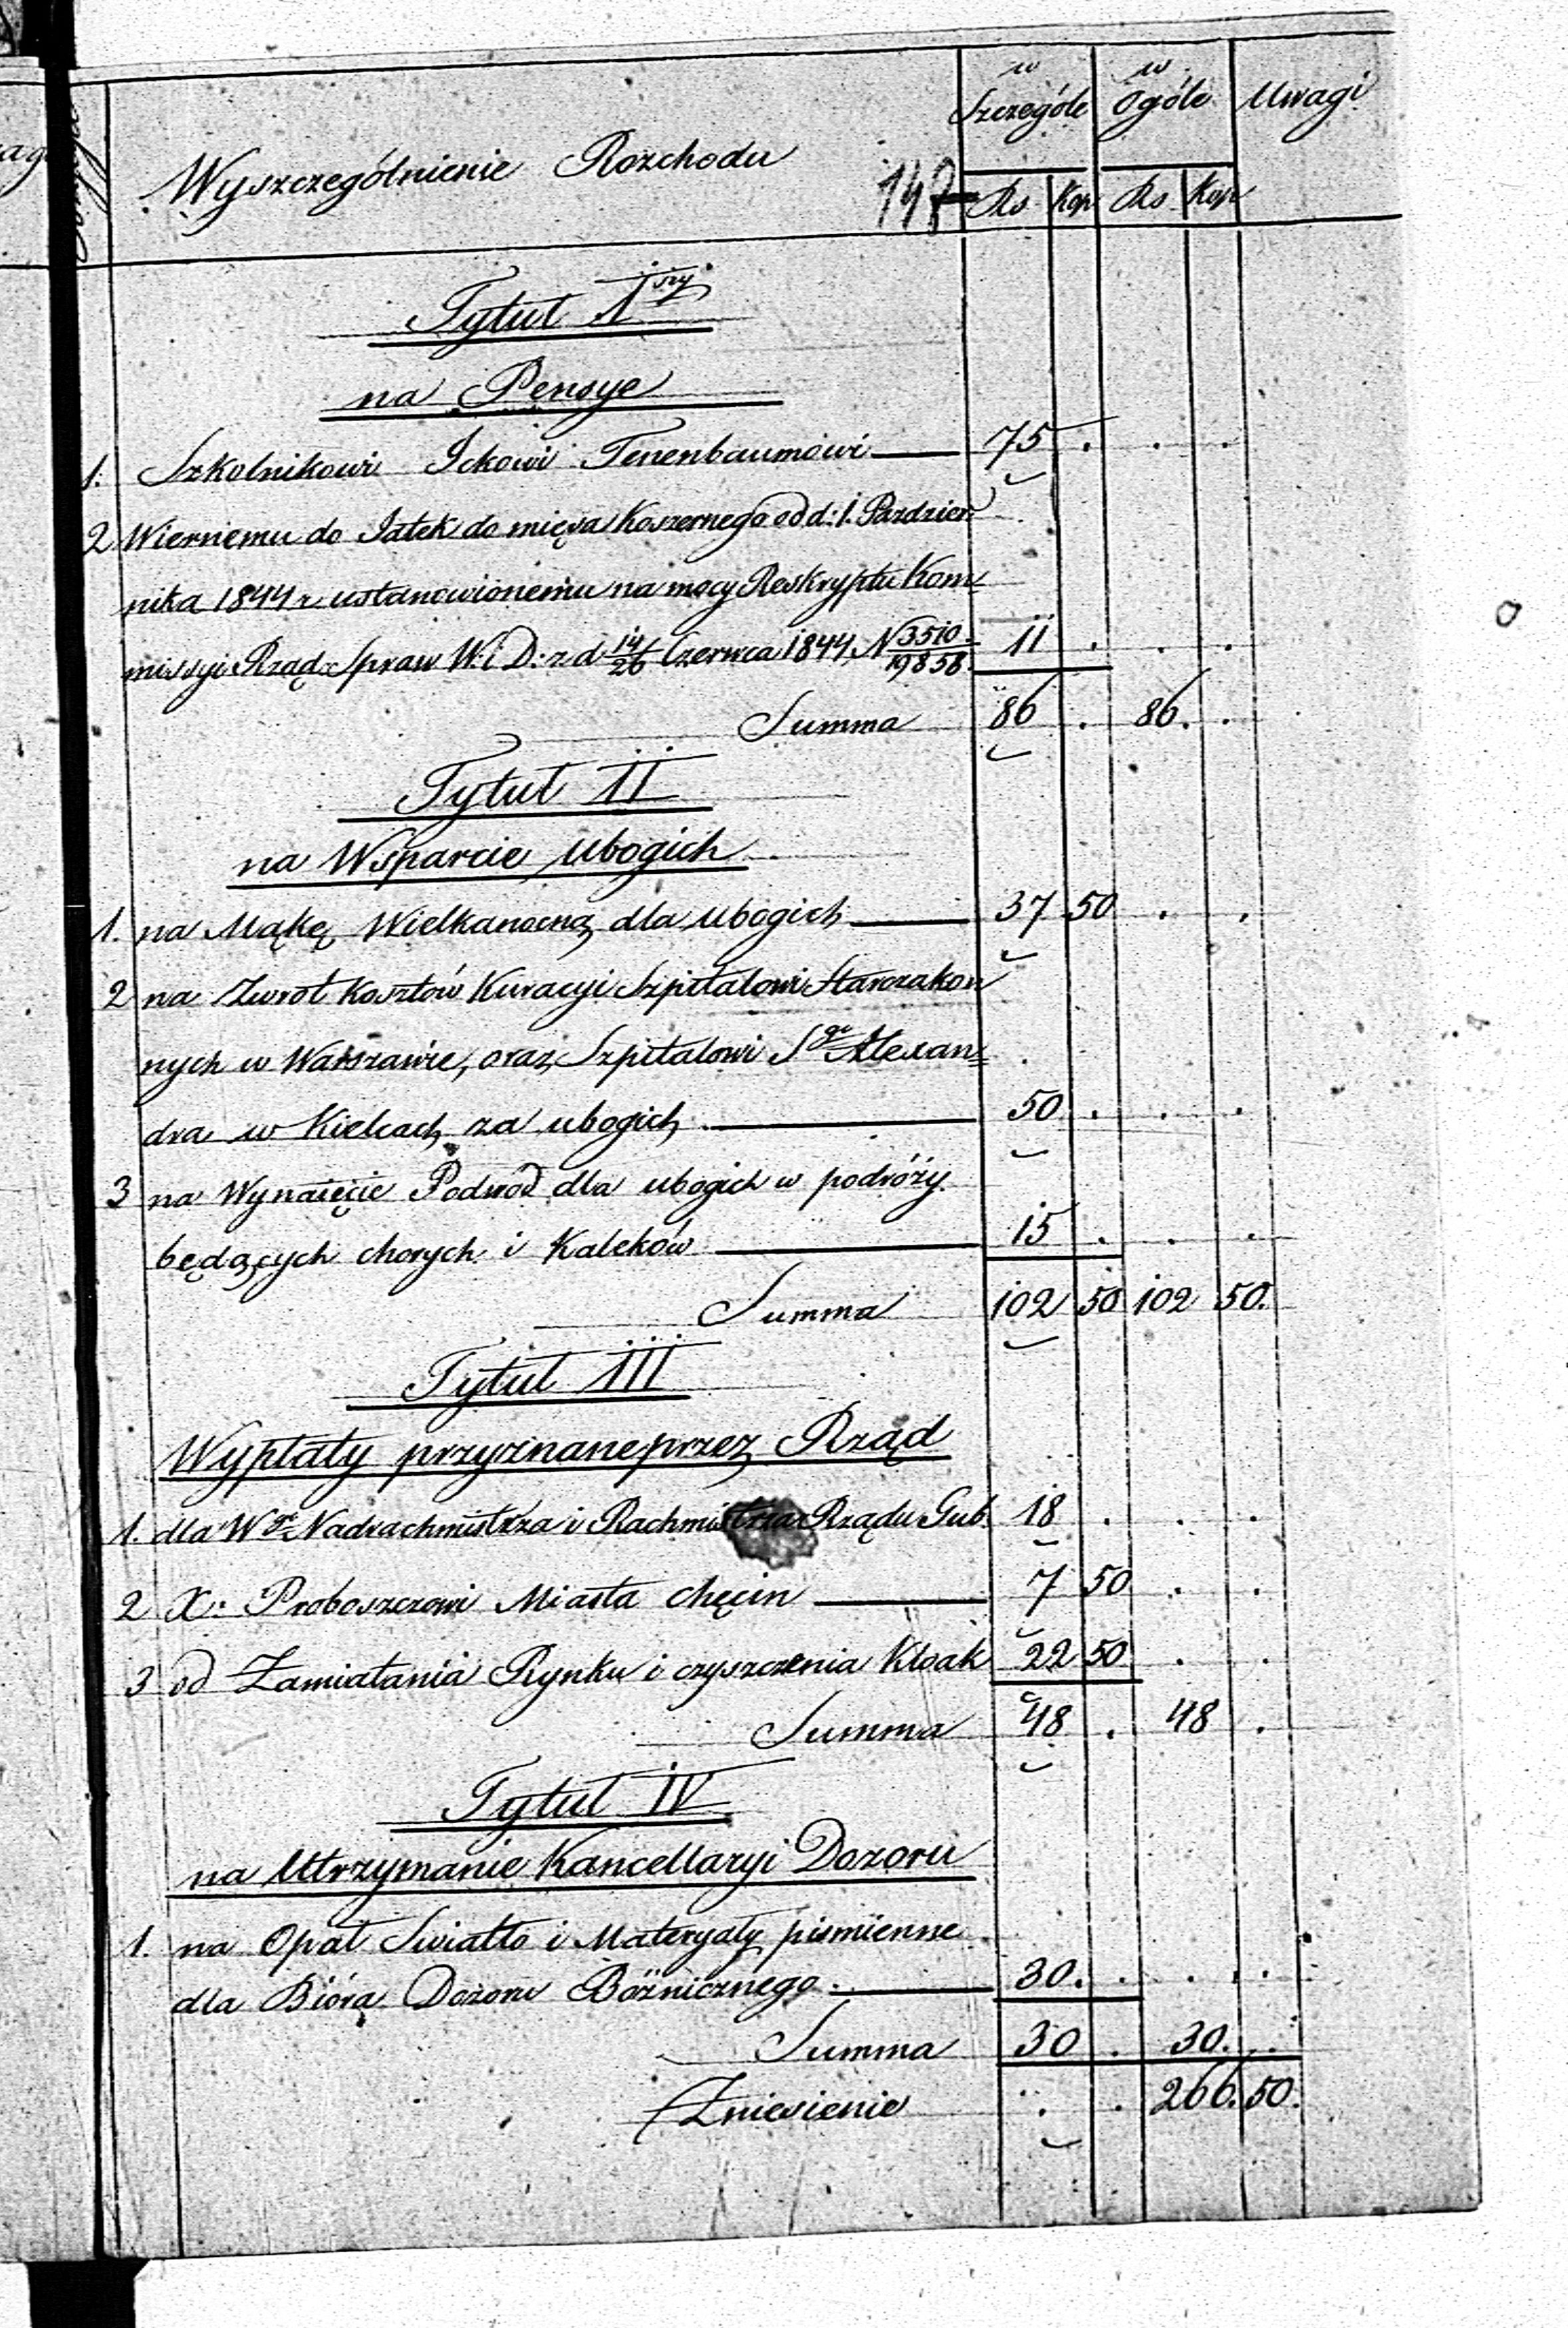 Wyszczególnienie Rozchodu
147
w Szczególe
w Ogóle
Uwagi
Rs Kop Rs Kop
Tytuł 1szy
na Pensye
1. Szkolnikowi Ickowi Tenenbaumowi 75 . . .
2 Wiernemu do Jatek do mięsa Koszernego od d: 1. Paździer=
nika 1844 r ustanowionemu na mocy Reskryptu Kom=
missyi Rząd: Spraw W. i D: z d 14/26 Czerwca 1844, N 3510/19858. 11 . . .
Summa 86 . 86. .
Tytuł II
na Wsparcie ubogich
1. na Mąkę Wielkanocną dla ubogich 37 50 . .
2 na Zwrot Kosztów Kuracyi Szpitalowi Starozakon
nych w Warszawie, oraz Szpitalowi Sgo Alexan=
dra w Kielcach za ubogich 50 . . .
3 na Wynaięcie Podwod dla ubogich w podróży
będących chorych i Kaleków 15 . . .
Summa 102 50 102 50.
Tytuł III
Wypłaty przyznane przez Rząd
1. dla Wgo Nadrachmistrza i Rachmistrza Rządu Gub. 18 . . .
2 X: Proboszczowi Miasta Chęcin 7 50 . .
3 od Zamiatania Rynku i czyszczenia Kloak 22 50 . .
Summa 48 . 48 .
Tytuł IV
na Utrzymanie Kancellaryi Dozoru
1. na Opał Swiatło i Materyały pismienne
dla Bióra Dozoru Bóżnicznego 30. . . .
Summa 30 . 30. .
Zniesienie . . 266. 50.